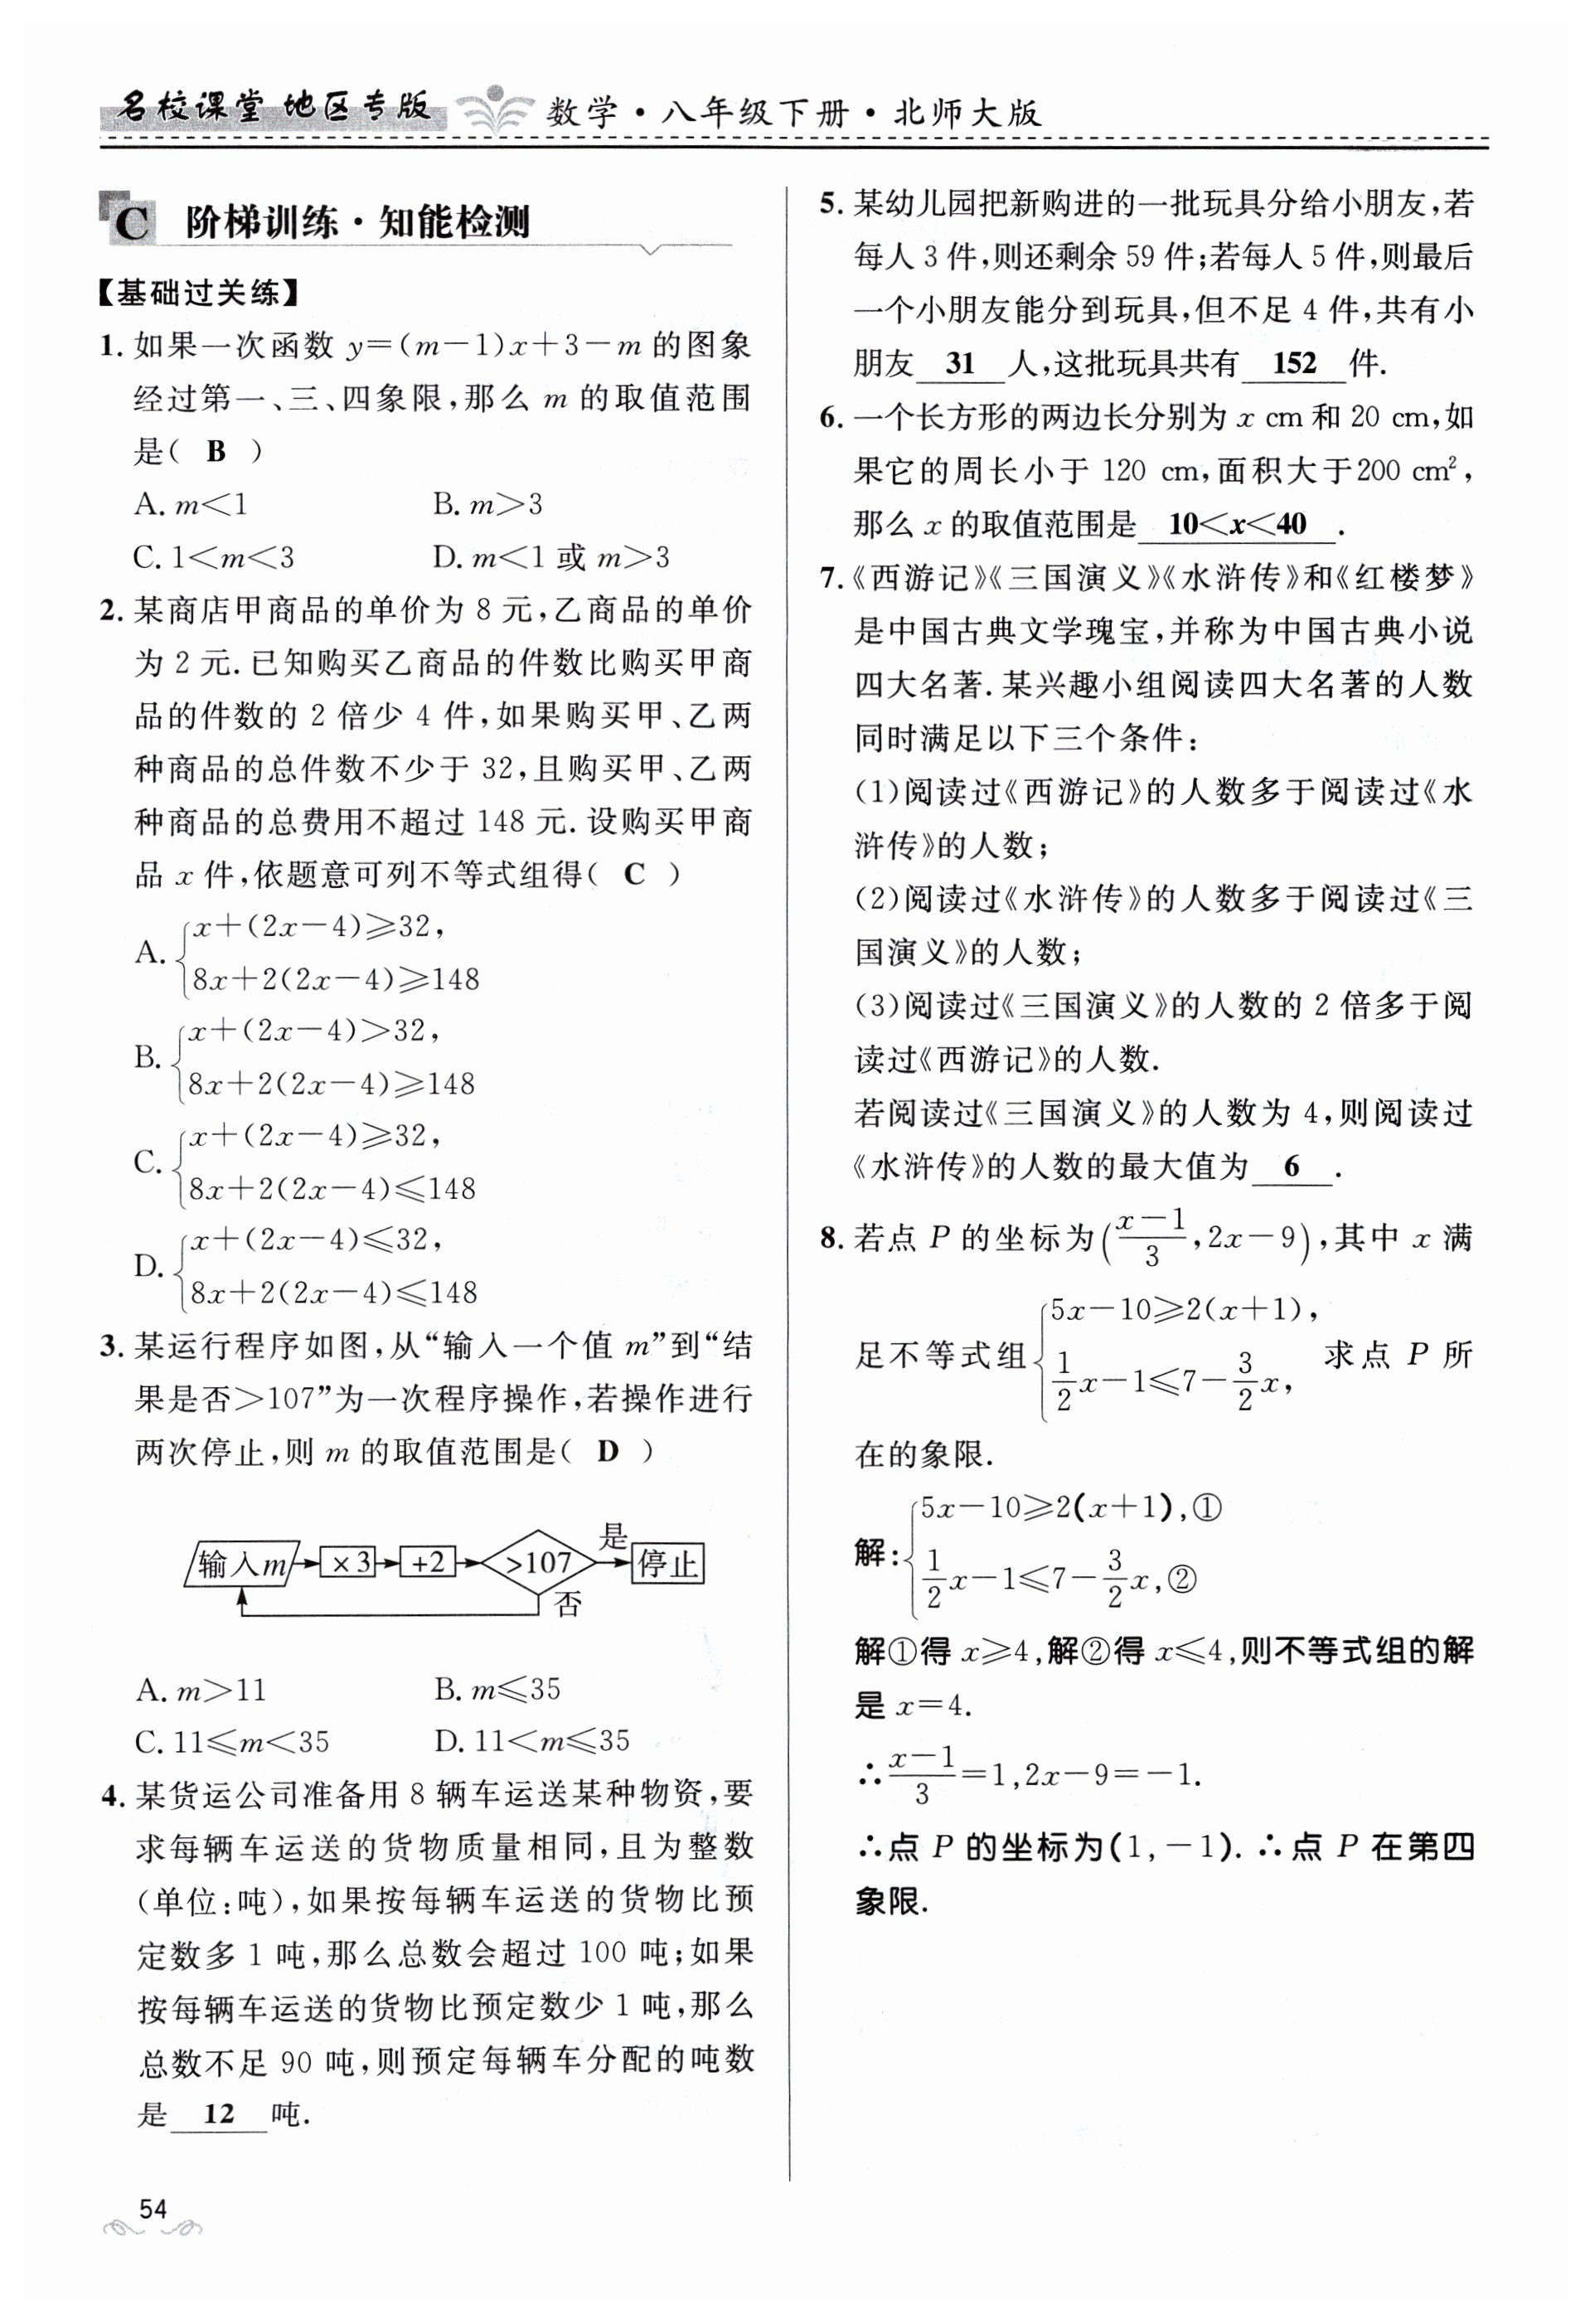 名校课堂 地区专版 数学·八年级下册·北师大版
C 阶梯训练·知能检测
【基础过关练】
1. 如果一次函数 y=(m-1)x+3-m 的图象
经过第一、三、四象限,那么 m 的取值范围
是( B )
A. m<1 B. m>3
C. 1<m<3 D. m<1 或 m>3
2. 某商店甲商品的单价为 8 元,乙商品的单价
为 2 元. 已知购买乙商品的件数比购买甲商
品的件数的 2 倍少 4 件,如果购买甲、乙两
种商品的总件数不少于 32,且购买甲、乙两
种商品的总费用不超过 148 元. 设购买甲商
品 x 件,依题意可列不等式组得( C )
A. {x+(2x-4)⩾32,
8x+2(2x-4)⩾148
B. {x+(2x-4)>32,
8x+2(2x-4)⩾148
C. {x+(2x-4)⩾32,
8x+2(2x-4)⩽148
D. {x+(2x-4)⩽32,
8x+2(2x-4)⩽148
3. 某运行程序如图,从“输入一个值 m”到“结
果是否>107”为一次程序操作,若操作进行
两次停止,则 m 的取值范围是( D )
输入m ×3 +2 >107 是 停止
否
A. m>11 B. m⩽35
C. 11⩽m<35 D. 11<m⩽35
4. 某货运公司准备用 8 辆车运送某种物资,要
求每辆车运送的货物质量相同,且为整数
(单位:吨),如果按每辆车运送的货物比预
定数多 1 吨,那么总数会超过 100 吨;如果
按每辆车运送的货物比预定数少 1 吨,那么
总数不足 90 吨,则预定每辆车分配的吨数
是 12 吨.
5. 某幼儿园把新购进的一批玩具分给小朋友,若
每人 3 件,则还剩余 59 件;若每人 5 件,则最后
一个小朋友能分到玩具,但不足 4 件,共有小
朋友 31 人,这批玩具共有 152 件.
6. 一个长方形的两边长分别为 x cm 和 20 cm,如
果它的周长小于 120 cm,面积大于200 cm²,
那么 x 的取值范围是 10<x<40 .
7.《西游记》《三国演义》《水浒传》和《红楼梦》
是中国古典文学瑰宝,并称为中国古典小说
四大名著. 某兴趣小组阅读四大名著的人数
同时满足以下三个条件:
(1)阅读过《西游记》的人数多于阅读过《水
浒传》的人数;
(2)阅读过《水浒传》的人数多于阅读过《三
国演义》的人数;
(3)阅读过《三国演义》的人数的 2 倍多于阅
读过《西游记》的人数.
若阅读过《三国演义》的人数为 4,则阅读过
《水浒传》的人数的最大值为 6 .
8. 若点 P 的坐标为((x-1)/3,2x-9),其中 x 满
足不等式组{5x-10⩾2(x+1),
1/2x-1⩽7-3/2x, 求点 P 所
在的象限.
解:{5x-10⩾2(x+1),①
1/2x-1⩽7-3/2x,②
解①得 x⩾4,解②得 x⩽4,则不等式组的解
是 x=4.
∴(x-1)/3=1,2x-9=-1.
∴点 P 的坐标为(1,-1). ∴点 P 在第四
象限.
54